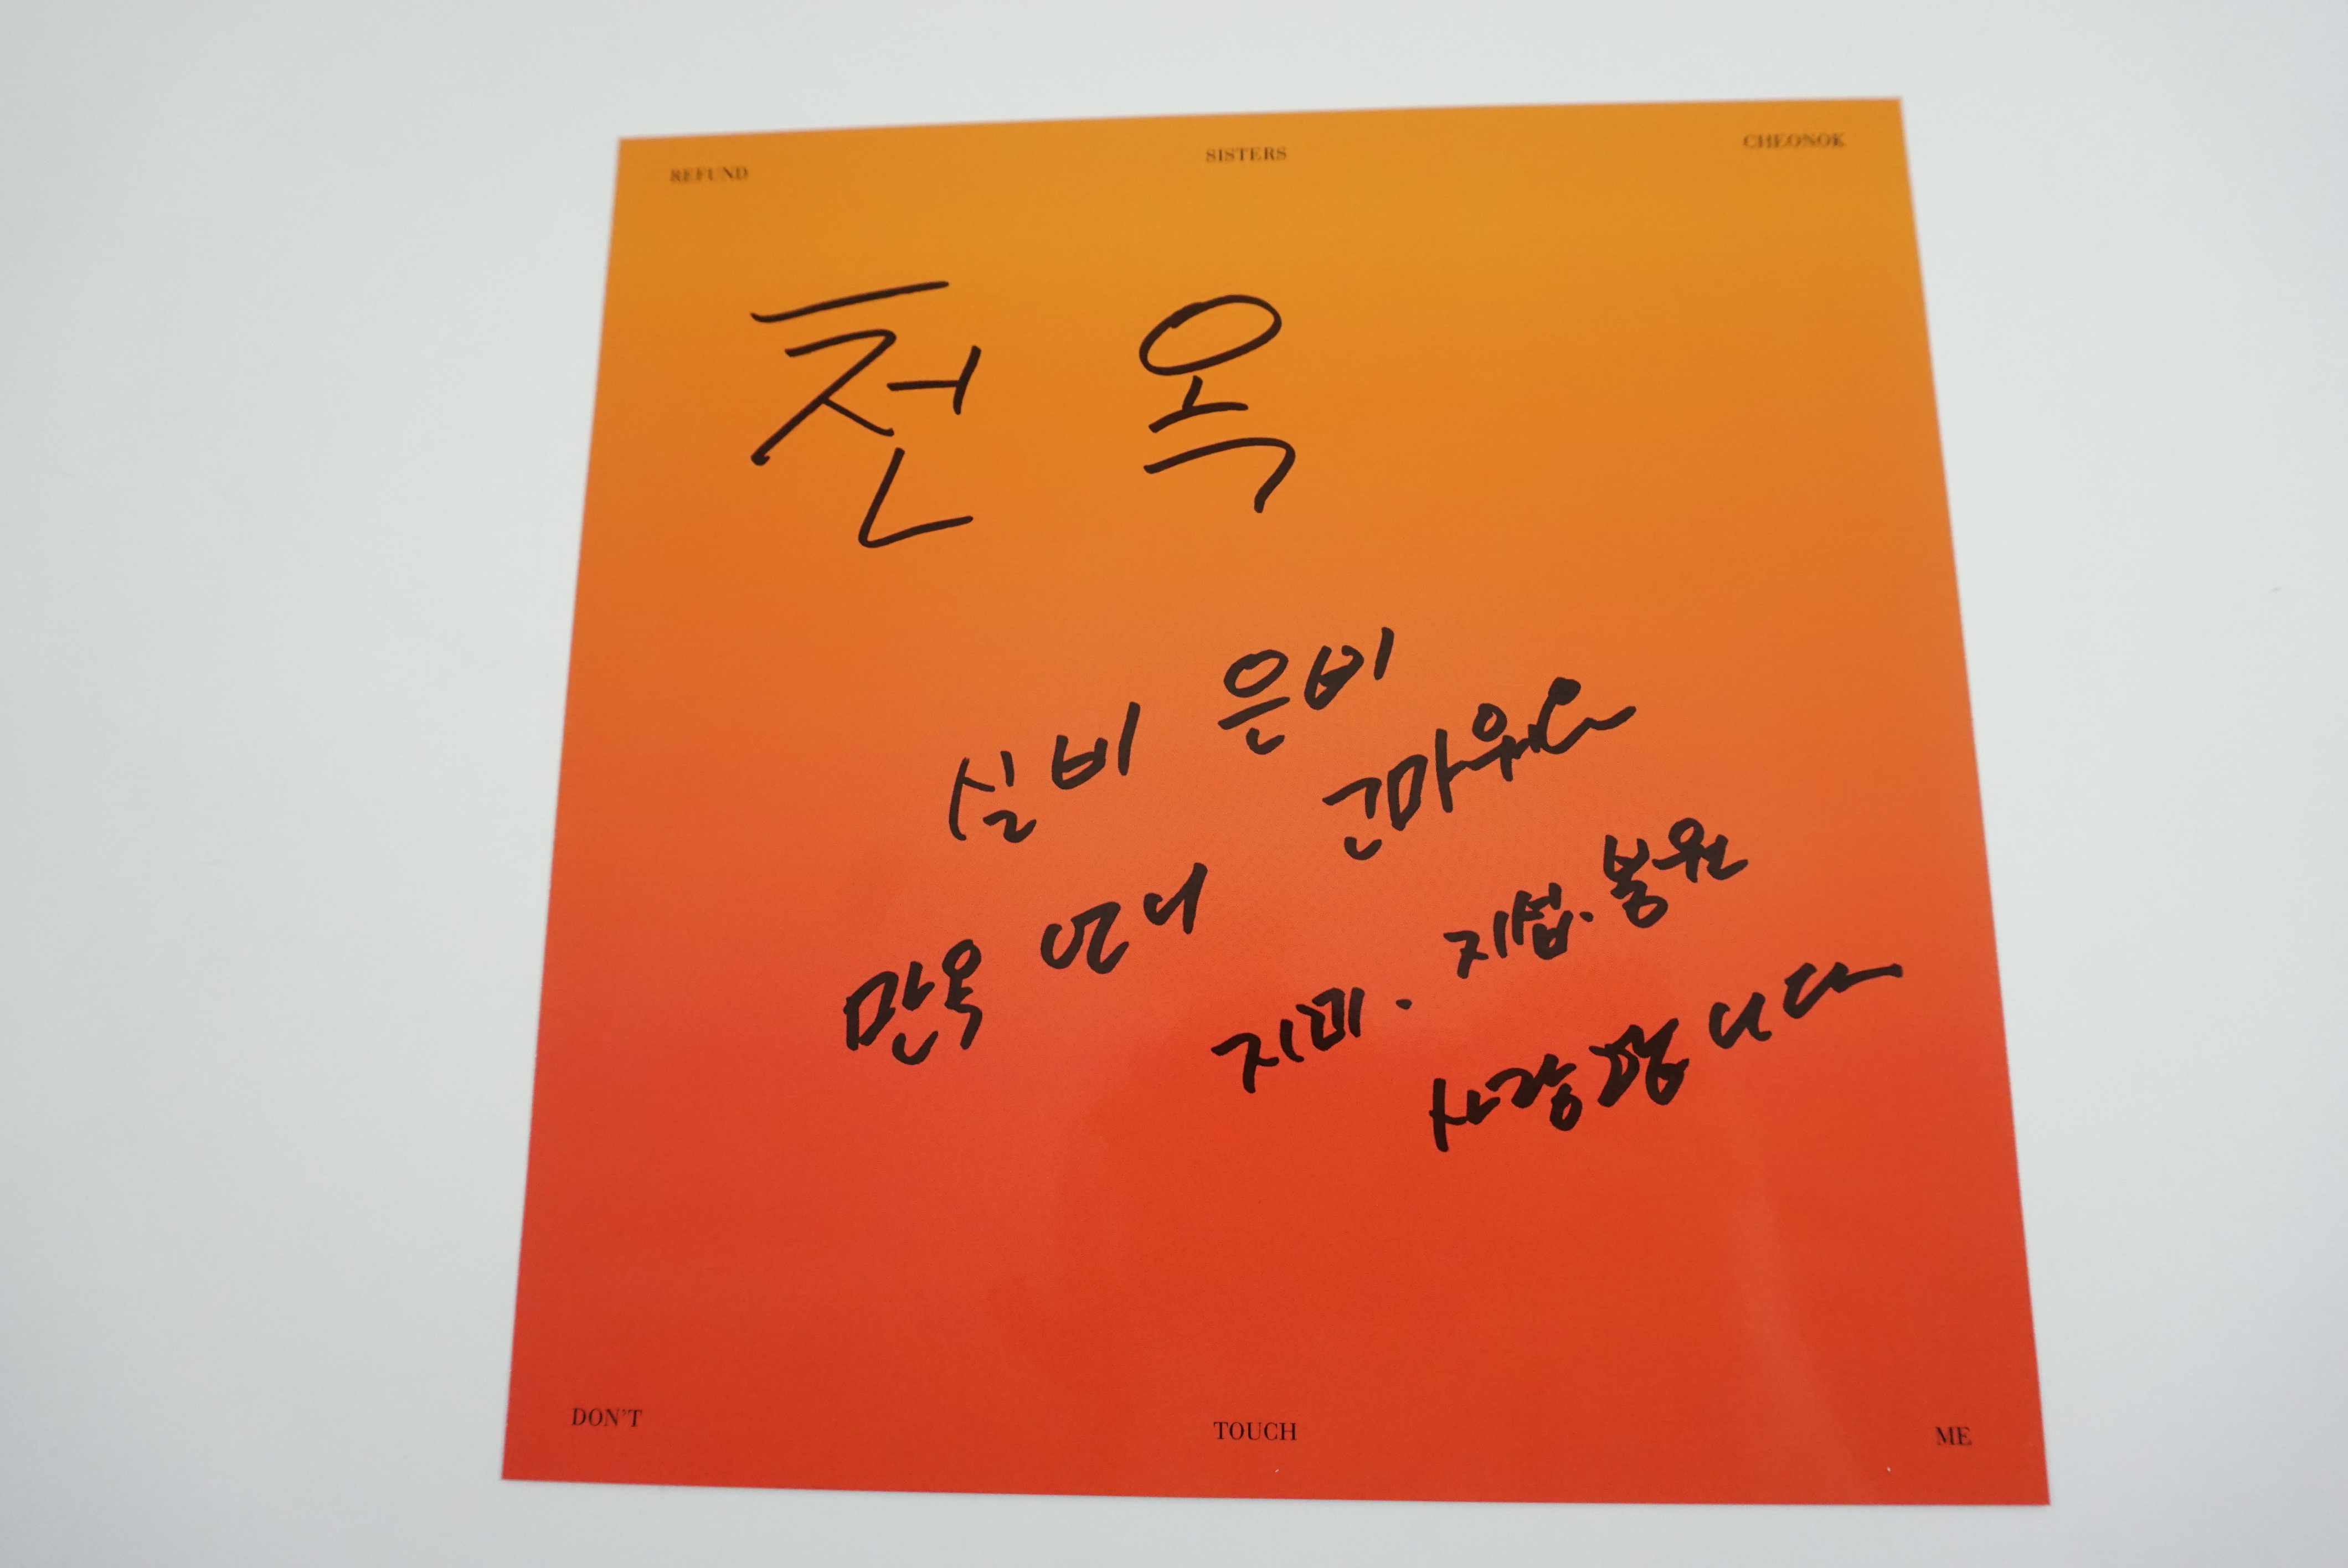 REFUND SISTERS CHEONOK
천 옥
실비 은비
만옥 언니 고마워요
지미. 지섭. 봉원
사랑합니다
DON'T TOUCH ME